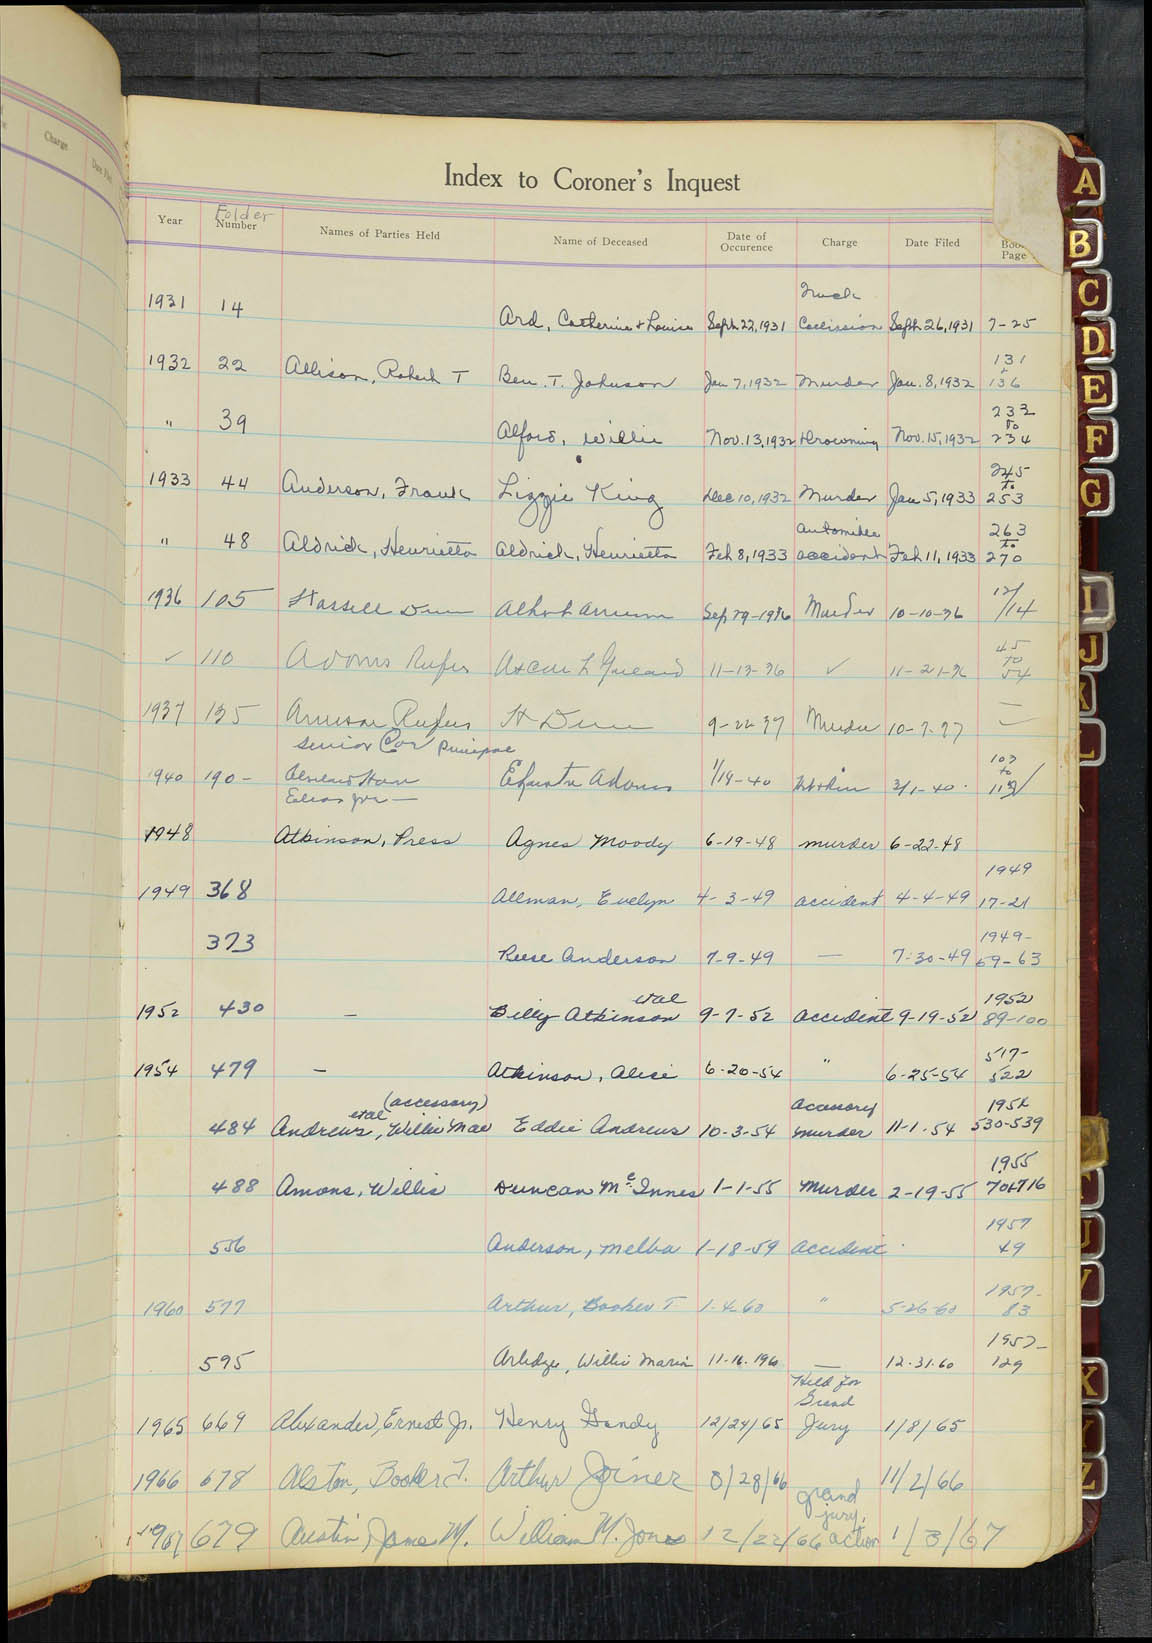 Charge
Date Filed
Index to Coroner's Inquest
Year Folder Number Names of Parties Held Name of Deceased Date of Occurence Charge Date Filed Book Page
Truck
1931 14 Ard, Catherine & Louise Sept. 22, 1931 Collission Sept. 26, 1931 7-25
131
1932 22 Allison, Robert T Ben. T. Johnson Jan 7, 1932 Murder Jan. 8, 1932 136
233
to
" 39 Alford, Willie Nov. 13, 1932 Drowning Nov. 15, 1932 234
245
to
1933 44 Anderson, Frank Lizzie King Dec 10, 1932 Murder Jan 5, 1933 253
automobile 263
to
" 48 Aldrick, Henrietta Aldrick, Henrietta Feb 8, 1933 accident Feb 11, 1933 270
1936 105 Hassell Dunn Albert Sep 29-1936 Murder 10-10-36 12/14
45
to
✓ 110 Adams Rufus 11-13-36 ✓ 11-21-36 54
1937 135 Rufus H Dunn 9-22-37 Murder 10-7-37 —
Senior Cor Principal
107
to
1940 190- Adams 1/19-40 2/1-40
Elias Jr. —
1948 Atkinson, Press Agnes Moody 6-19-48 murder 6-22-48
1949
1949 368 Allman, Evelyn 4-3-49 accident 4-4-49 17-21
1949-
373 Reese Anderson 7-9-49 — 7-30-49 59-63
etal 1952
1952 430 — Billy Atkinson 9-7-52 accident 9-19-52 89-100
517-
1954 479 — Atkinson, Alice 6-20-54 " 6-25-54 522
(accessory) accessory 1954
etal
484 Andrews, Willie Mae Eddie Andrews 10-3-54 murder 11-1-54 530-539
1955
488 Amons, Willis Duncan McInnes 1-1-55 Murder 2-19-55 704-716
1957
556 Anderson, Melba 1-18-59 accident 49
1957-
1960 577 Arthur, Booker T 1-4-60 " 5-26-60 83
1957-
595 Arledge, Willie Maria 11-16-1960 — 12-31-60 129
Held for
Grand
1965 669 Alexander, Ernest Jr. Henry Gandy 12/24/65 Jury 1/8/65
1966 678 Alston, Booker T. Arthur Joiner 8/28/66 11/2/66
grand
jury,
1967 679 Austin, James M. William M. Jones 12/22/66 action 1/3/67
A
B
C
D
E
F
G
I
J
K
L
U
V
X
Y
Z